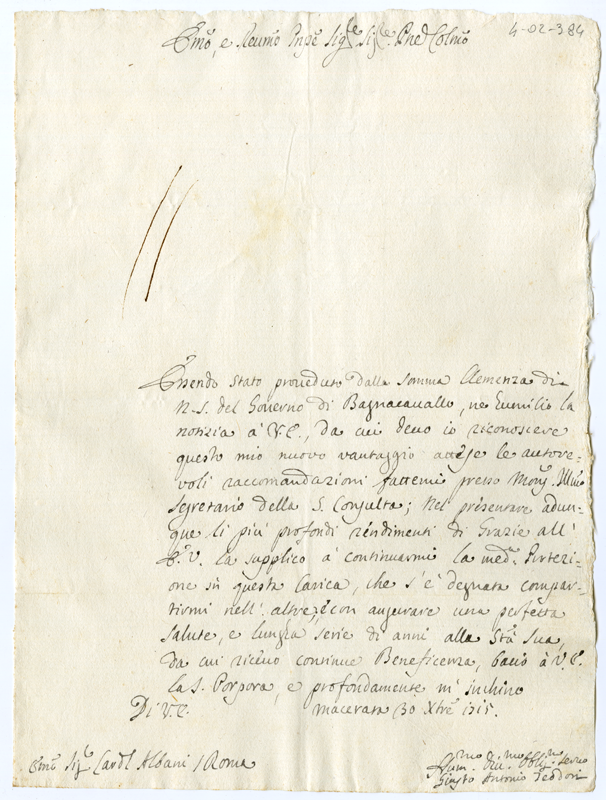 Emo, e Reumo Inpe Sigre Sigre Pne Colmo
4-02-384
Essendo stato proueduto dalla somma Clemenza di
N.S. del Gouerno di Bagnacauallo, ne humilio la
notizia à V.E., da cui deuo io riconoscere
questo mio nuouo vantaggio attese le autore-
voli raccomandazioni fattemi presso Mons. Illmo
Segretario della S. Consulta; Nel presentare adun-
que li più profondi rendimenti di Grazie all'
E.V. la supplico à continuarmi la meda Protezi-
one in questa Carica, che s'è degnata compar-
tirmi nell'altre, e con augurare una perfetta
salute, e lunga serie di anni alla Sta Sua,
da cui riceuo continue Beneficenza, bacio à V.E.
la S. Porpora, e profondamente m'inchino
Di V.E. Macerata 30 Xbre 1715.
Emo Sigre Cardl Albani / Roma
Hummo Diumo Obblmo Seruo
Giusto Antonio Teodori